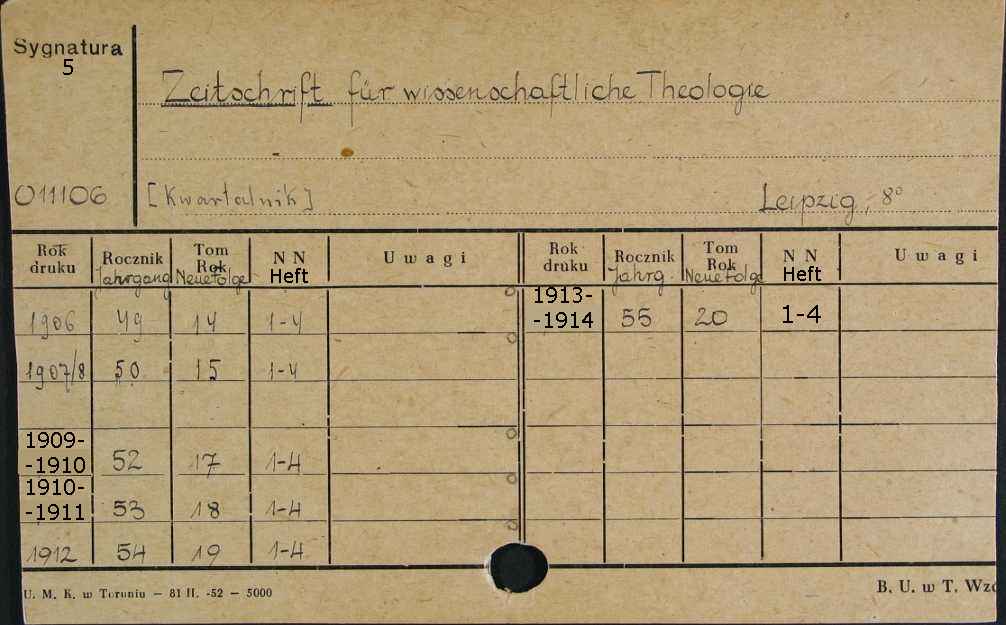 Sygnatura
5
Zeitschrift für wissenschaftliche Theologie
011106 [Kwartalnik] Leipzig, 8°
Rok druku Rocznik Jahrgang Tom Rok Neue Folge NN Heft Uwagi Rok druku Rocznik Jahrg. Tom Rok Neue Folge NN Heft Uwagi
1906 49 14 1-4 1913-
-1914 55 20 1-4
1907/8 50 15 1-4
1909-
-1910 52 17 1-4
1910-
-1911 53 18 1-4
1912 54 19 1-4
U. M. K. w Toruniu — 81 II. -52 — 5000 B. U. w T.